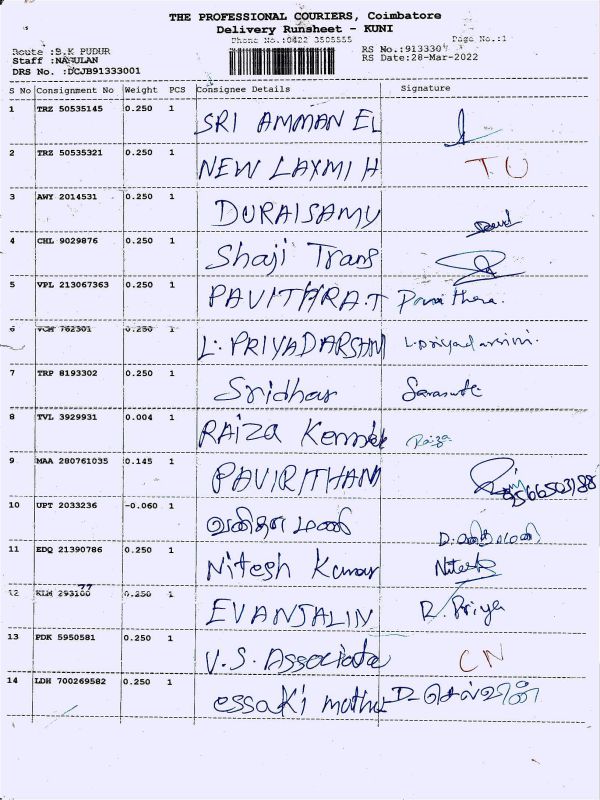 THE PROFESSIONAL COURIERS, Coimbatore
Delivery Runsheet - KUNI
Phone No.:0422 3505555 Page No.:1
Route :B.K PUDUR RS No.:9133304
Staff :NASULAN RS Date:28-Mar-2022
DRS No. :DCJB91333001
S No Consignment No Weight PCS Consignee Details Signature
1 TRZ 50535145 0.250 1 SRI AMMAN EL
2 TRZ 50535321 0.250 1 NEW LAXMI H TU
3 AWY 2014531 0.250 1 DURAISAMY
4 CHL 9029876 0.250 1 Shaji Trans
5 VPL 213067363 0.250 1 PAVITHRA.T Pavithera.
6 VCM 762301 0.250 1 L. PRIYADARSHNI L.priyadarsini.
7 TRP 8193302 0.250 1 Sridhar
8 TVL 3929931 0.004 1 RAiZA Raiza
9 MAA 280761035 0.145 1 PAVIRITHAN 9566503188
10 UPT 2033236 -0.060 1
11 EDQ 21390786 0.250 1 Nitesh Kumar Nitesh
12 KLM 293100 77 0.250 1 EVANJALIN R. Priya
13 PDK 5950581 0.250 1 V.S. Associate CN
14 LDH 700269582 0.240 1 essaki muthu D-செல்வின்